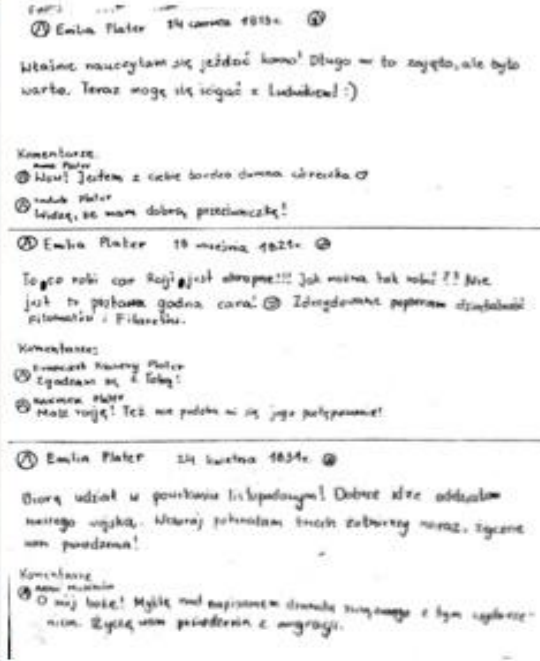 Emilia Plater 24 czerwca 1815r.
Właśnie nauczyłam się jeździć konno! Długo mi to zajęło, ale było
warto. Teraz mogę się ścigać z Ludwikiem! :)
Komentarze
Anna Plater
Wow! Jestem z ciebie bardzo dumna córeczko
Ludwik Plater
Widzę, że mam dobrą przeciwniczkę!
Emilia Plater 18 września 1821r.
To co robi car Rosji jest okropne!!! Jak można tak robić?! Nie
jest to postawa godna cara! Zdecydowanie popieram działalność
Filomatów i Filaretów.
Komentarze:
Franciszek Ksawery Plater
Zgadzam się z Tobą!
Plater
Masz rację! Też nie podoba mi się jego postępowanie!
Emilia Plater 24 kwietnia 1831r.
Biorę udział w powstaniu listopadowym! Dobrze idzie oddziałom
naszego wojska. Wczoraj pokonałam trzech żołnierzy naraz, życzcie
nam powodzenia!
Komentarze
Adam Mickiewicz
O mój boże! Myślę nad napisaniem dramatu związanego z tym
Życzę wam powodzenia z emigracji.